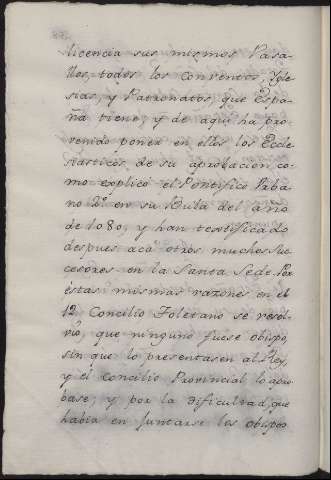 licencia sus mismos Vasa-
llos, todos los Conventos, Ygle
sias, y Patronatos, que Espa-
ña tiene, y de aqui ha pro-
venido poner en ellos los Ecle-
siasticos de su aprobacion, co-
mo explicó el Pontifice Urba
no 2º en su Bula del año
de 1080, y han testificado
despues acá otros muchos suc-
cesores en la Santa Sede. Por
estas mismas razones en el
12 Concilio Toletano se resol-
vió, que ninguno fuese obispo,
sin que lo presentasen al Rey,
y el Concilio Provincial lo apro
base; y por la dificultad, que
habia en juntarse los obispos